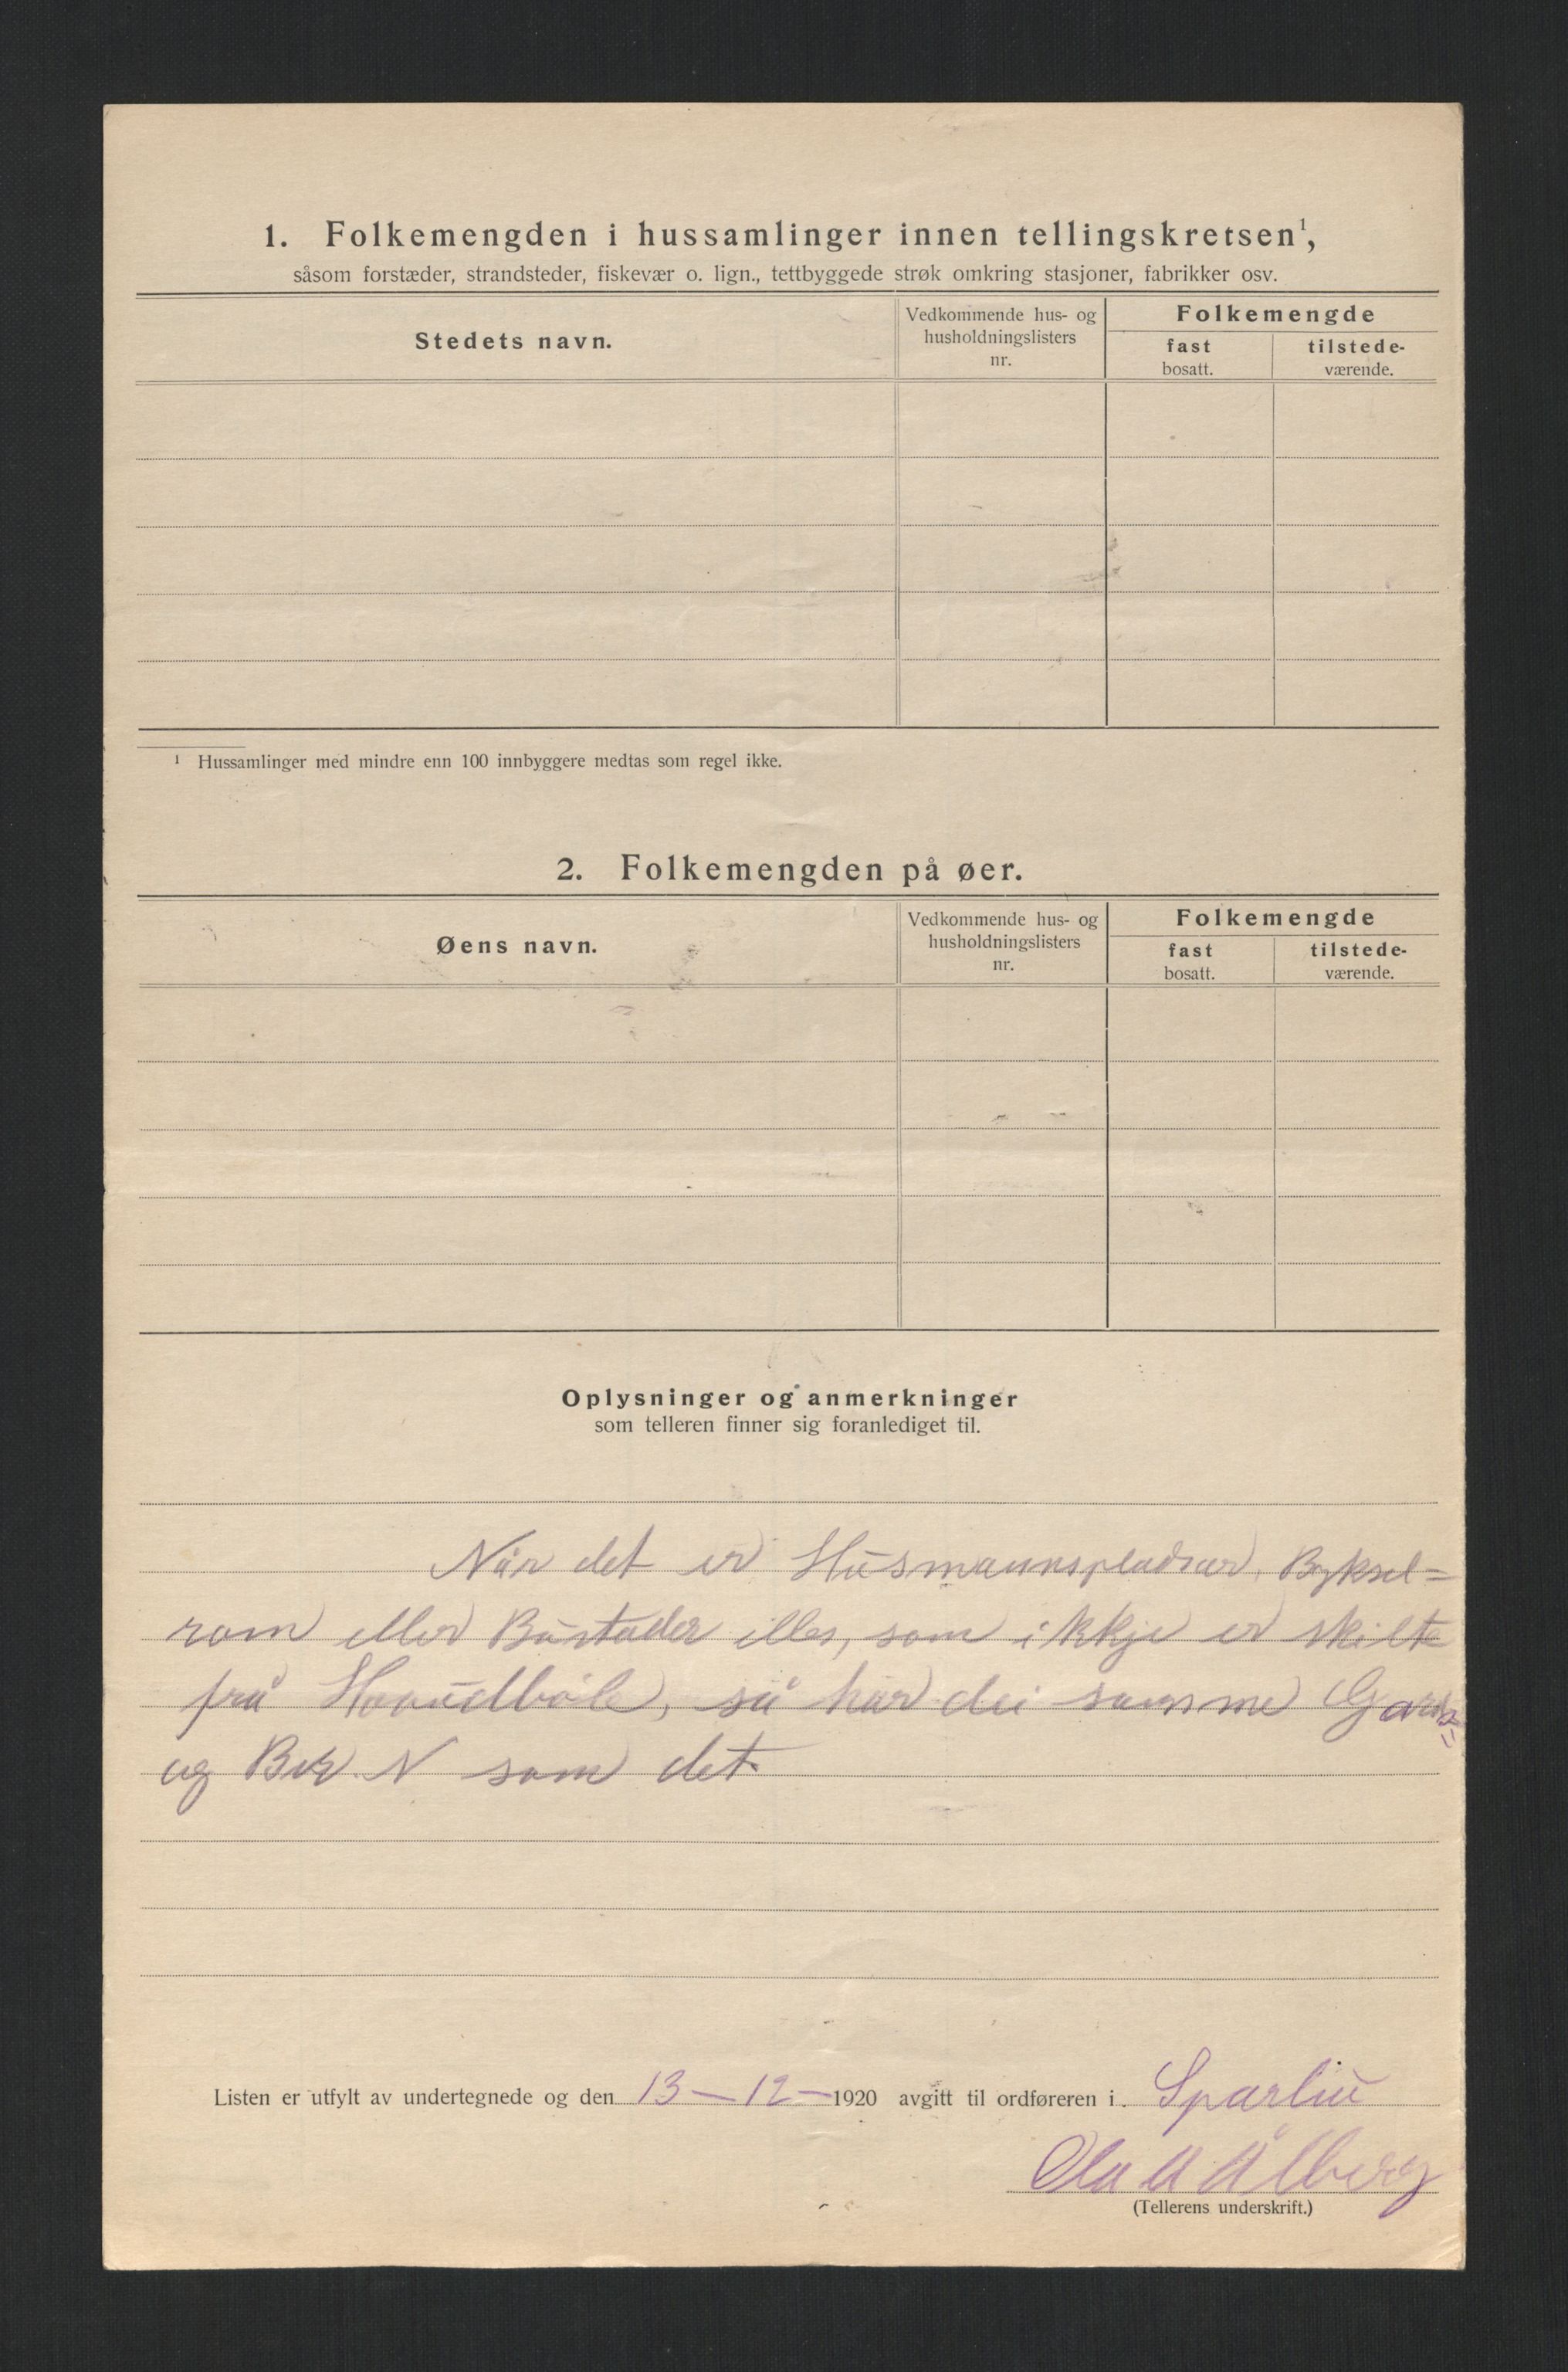 1. Folkemengden i hussamlinger innen tellingskretsen¹,
såsom forstæder, strandsteder, fiskevær o. lign., tettbyggede strøk omkring stasjoner, fabrikker osv.
Stedets navn.
Vedkommende hus- og
husholdningslisters
nr.
Folkemengde
fast
bosatt.
tilstede-
værende.
¹ Hussamlinger med mindre enn 100 innbyggere medtas som regel ikke.
2. Folkemengden på øer.
Øens navn.
Vedkommende hus- og
husholdningslisters
nr.
Folkemengde
fast
bosatt.
tilstede-
værende.
Oplysninger og anmerkninger
som telleren finner sig foranlediget til.
Når det er Husmannspladsar, Byksel=
rom eller Bustader elles, som ikkje er skilte
frå Hovudbøle, så har dei samme Gards=
og Br. N som det
Listen er utfylt av undertegnede og den 13-12-1920 avgitt til ordføreren i Sparbu
Ola Ålberg
(Tellerens underskrift.)